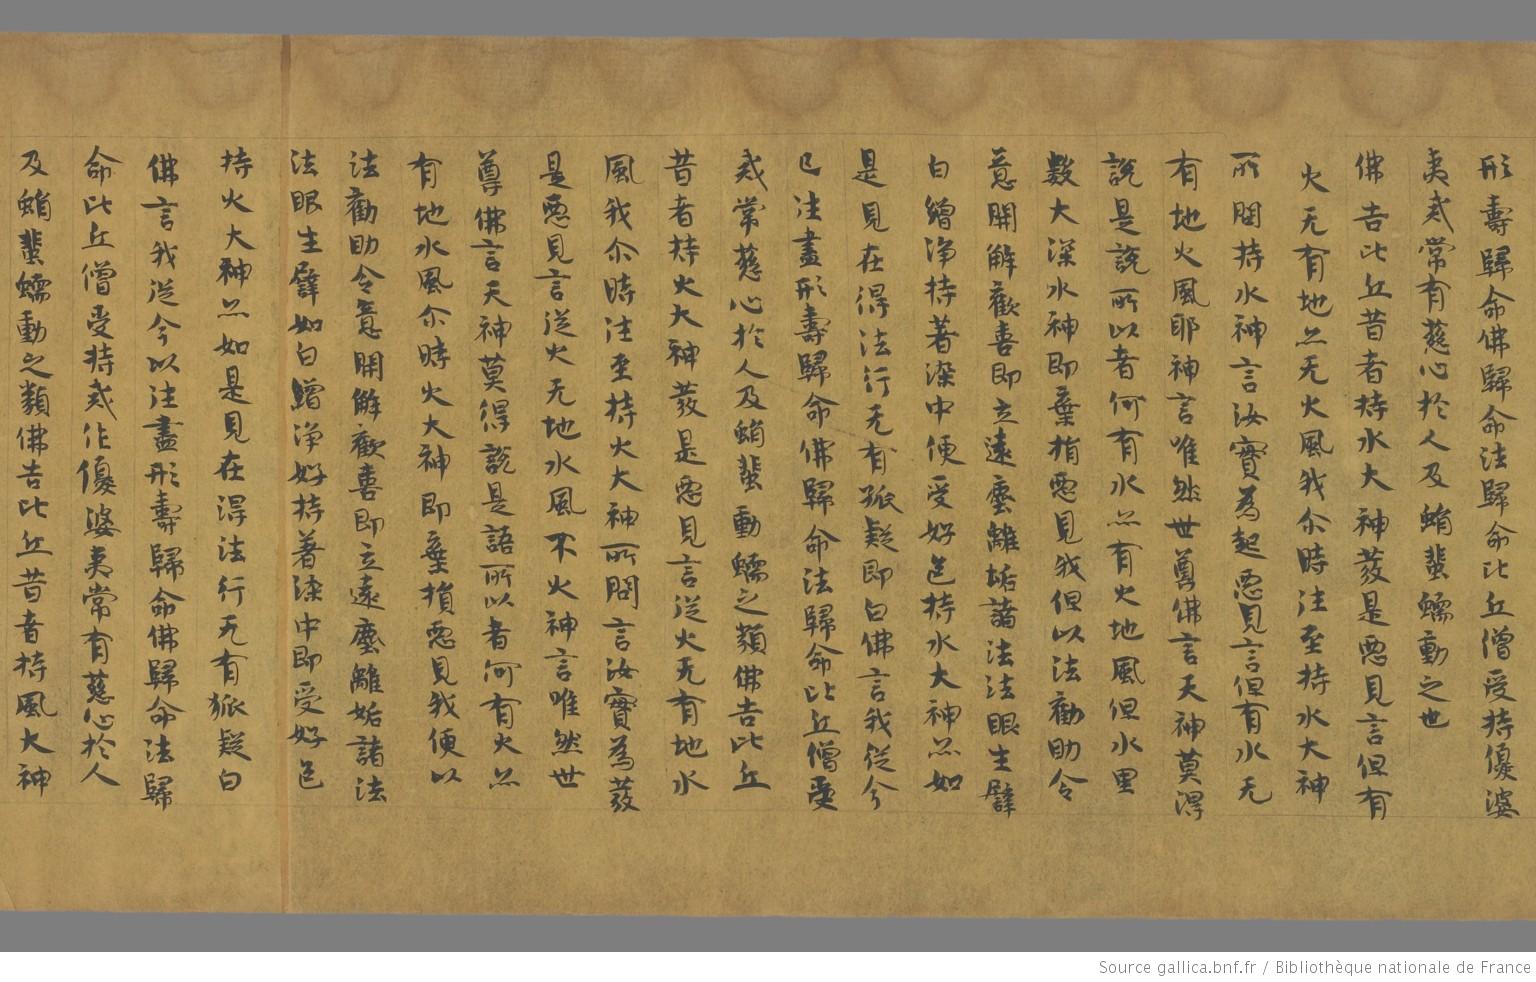 形壽歸命佛歸命法歸命比丘僧受持優婆
夷戒常有慈心於人及蜎蜚蠕動之也
佛告比丘昔者持水大神發是惡見言但有
火无有地亦无火風我尒時注至持水大神
所問持水神言汝實為起惡見言但有水无
有地火風耶神言唯然世尊佛言天神莫得
說是說所以者何有水亦有火地風但水里
數大深水神即棄捐惡見我但以法勸助令
意開解歡喜即立遠塵離垢諸法法眼生譬
白繒淨持著染中便受好色持水大神亦如
是見在得法行无有狐疑即白佛言我從今
已注盡形壽歸命佛歸命法歸命比丘僧受
戒常慈心於人及蜎蜚動蠕之類佛告比丘
昔者持火大神發是惡見言從火无有地水
風我尒時注至持火大神所問言汝實為發
是惡見言從火无地水風不火神言唯然世
尊佛言天神莫得說是語所以者何有火亦
有地水風尒時火大神即棄捐惡見我便以
法勸助令意開解歡喜即立遠塵離垢諸法
法眼生譬如白繒淨好持著染中即受好色
持火大神亦如是見在得法行无有狐疑白
佛言我從今以注盡形壽歸命佛歸命法歸
命比丘僧受持戒作優婆夷常有慈心於人
及蜎蜚蠕動之類佛告比丘昔者持風大神
Source gallica.bnf.fr / Bibliothèque nationale de France